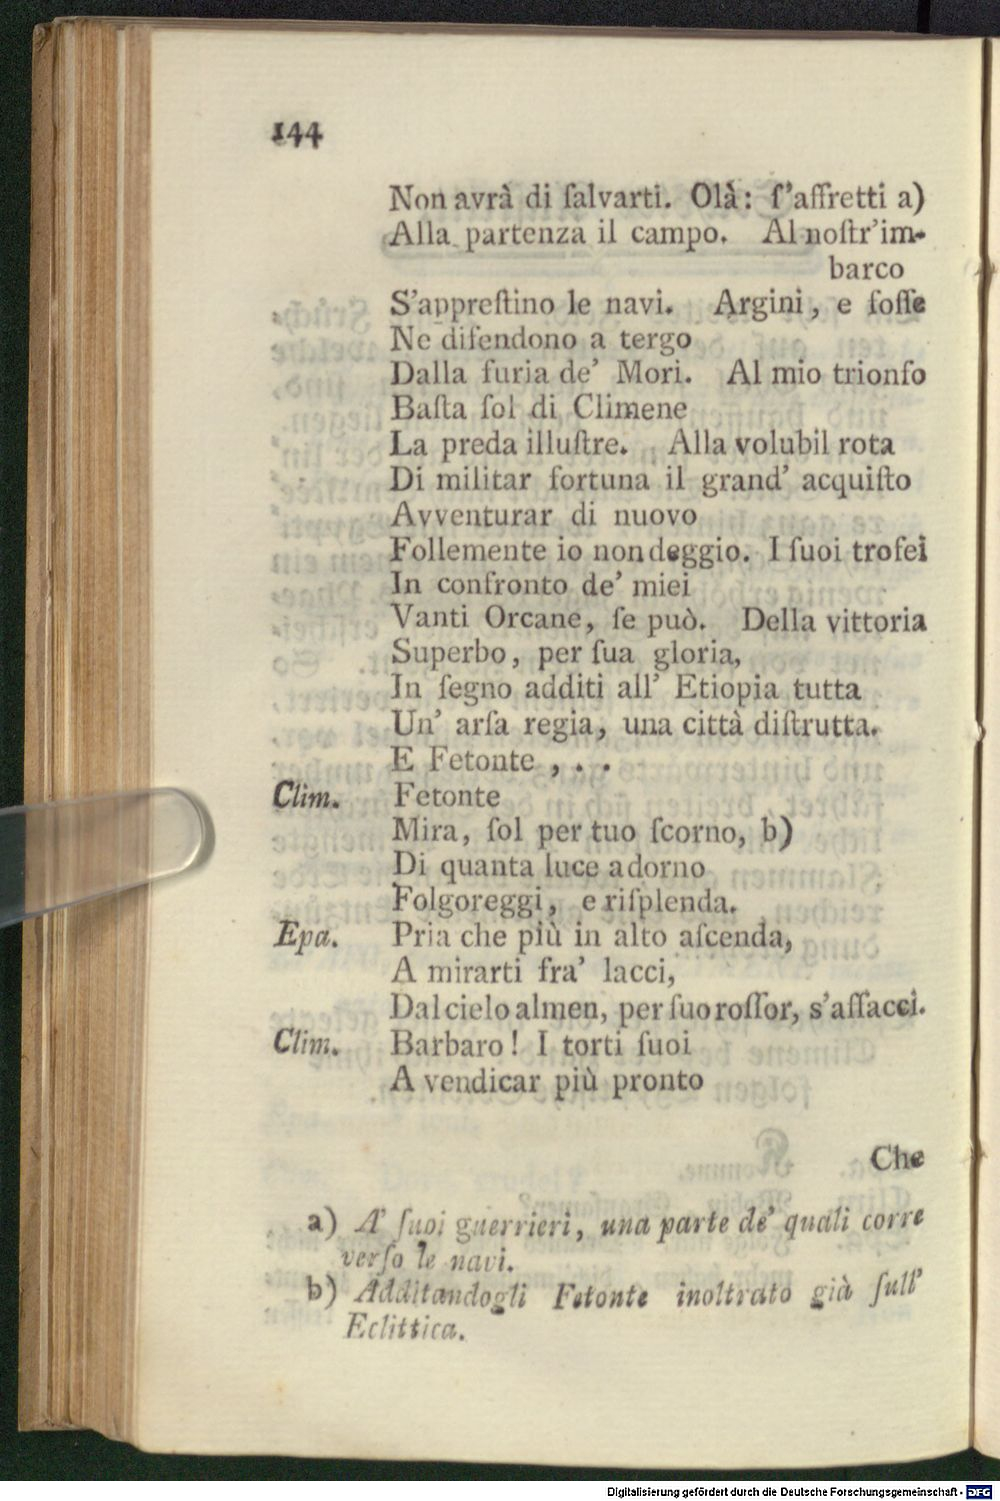 144
Non avrà di ſalvarti. Olà: ſ'affretti a)
Alla partenza il campo. Al noſtr'im-
barco
S'appreſtino le navi. Argini, e foſſe
Ne difendono a tergo
Dalla furia de' Mori. Al mio trionfo
Baſta ſol di Climene
La preda illuſtre. Alla volubil rota
Di militar fortuna il grand' acquiſto
Avventurar di nuovo
Follemente io non deggio. I ſuoi trofei
In confronto de' miei
Vanti Orcane, ſe può. Della vittoria
Superbo, per ſua gloria,
In ſegno additi all' Etiopia tutta
Un' arſa regia, una città diſtrutta.
E Fetonte , . .
Clim. Fetonte
Mira, ſol per tuo ſcorno, b)
Di quanta luce adorno
Folgoreggi, e riſplenda.
Epa. Pria che più in alto aſcenda,
A mirarti fra' lacci,
Dal cielo almen, per ſuo roſſor, s'affacci.
Clim. Barbaro! I torti ſuoi
A vendicar più pronto
Che
a) A' ſuoi guerrieri, una parte de' quali corre
verſo le navi.
b) Additandogli Fetonte inoltrato già ſull'
Eclittica.
Digitalisierung gefördert durch die Deutsche Forschungsgemeinschaft - DFG